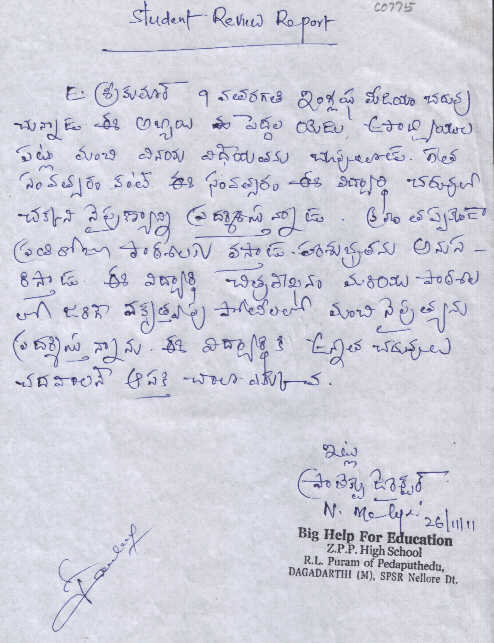 Student Review Report
C0775
E. శ్రీకుమార్ 9 వతరగతి ఇంగ్లీషు మీడియం చదువు
చున్నాడు ఈ అబ్బాయి పెద్దల యెడు, ఉపాధ్యాయుల
పట్ల మంచి వినయ విధేయతను చూపుతాడు. గత
సంవత్సరం కంటే ఈ సంవత్సరం ఈ విద్యార్థి చదువులో
చక్కని నైపుణ్యాన్ని ప్రదర్శిస్తున్నాడు. క్రమం తప్పకుండా
ప్రతిరోజు పాఠశాలకు వస్తాడు. పరిశుభ్రతను అనుస
రిస్తాడు ఈ విద్యార్థి చిత్రలేఖనం మరియు పాఠశాల
లో జరిగే వక్తృత్వపు పోటీలలో మంచి నైపుణ్యను
ప్రదర్శిస్తున్నాను. ఈ విద్యార్థికి ఉన్నత చదువులు
చదవాలనే ఆసక్తి చాలా ఎక్కువ.
ఇట్లు
N. 26/11/11
Big Help For Education
Z.P.P. High School
R.L. Puram of Pedaputhedu,
DAGADARTHI (M), SPSR Nellore Dt.